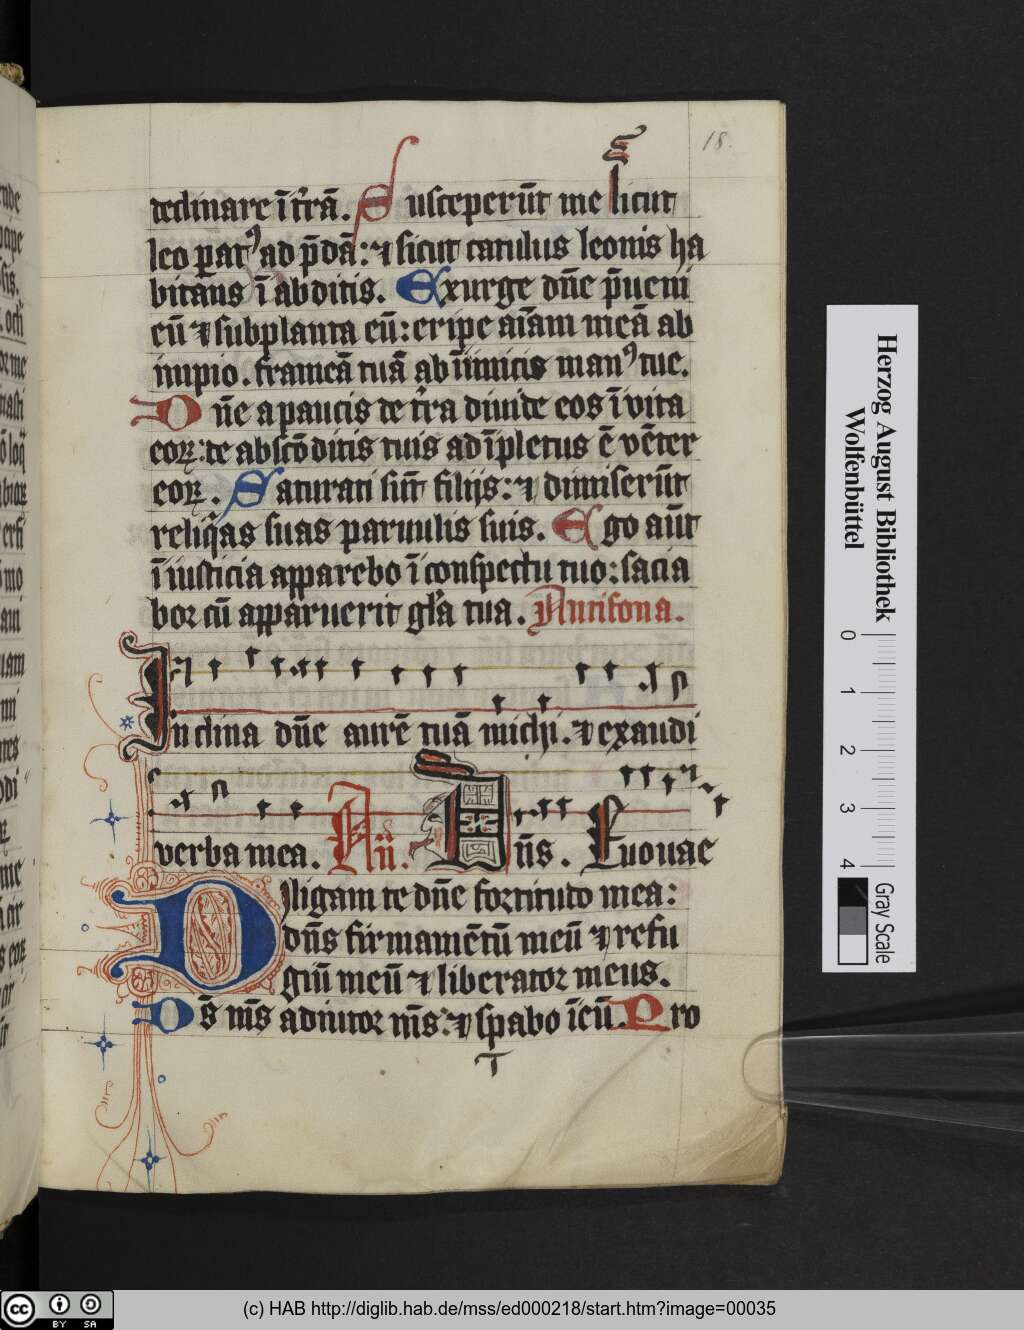 18.
declinare ī t̄rā. Susceperūt me sicut
leo parat⁹ ad p̄dā: ⁊ sicut catulus leonis ha
bitans ī abditis. Exurge dn̄e p̄ueni
eū ⁊ subplanta eū: eripe aīam meā ab
inpio. frameā tuā ab īimicis man⁹ tue.
Dn̄e a paucis de t̄ra diuide eos ī vita
eoꝝ: de abscōditis tuis adīpletus ē vēter
eoꝝ. Saturati sūt filijs: ⁊ dimiserūt
reliq̄as suas paruulis suis. Ego aūt
ī iusticia apparebo ī conspectu tuo: sacia
bor cū apparuerit gl̄a tua. Antifona.
Inclina dn̄e aurē tuā michi. ⁊ exaudi
verba mea. An̄. Dn̄s. Euouae
Diligam te dn̄e fortitudo mea:
dn̄s firmamētū meū ⁊ refu
giū meū ⁊ liberator meus.
Ds̄ ms̄ adiutor ms̄: ⁊ spabo ī eū. Pro
Herzog August Bibliothek
Wolfenbüttel
0 1 2 3 4
Gray Scale
cc BY SA
(c) HAB http://diglib.hab.de/mss/ed000218/start.htm?image=00035